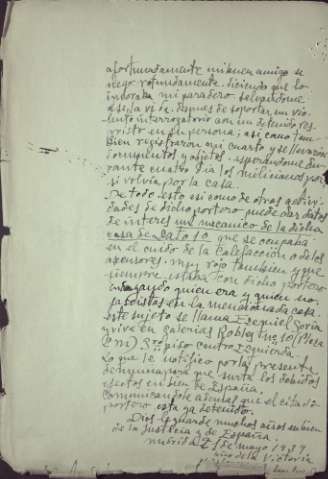 afortunadamente mi buen amigo se
nego rotundamente. diciendo que lo
inoraba mi paradero salvandome
asi la vida. despues de soportar un vio-
lento interrogatorio con un detenido res-
gistro en su persona; asi como tam-
bien registraron mi cuarto y se llevaron
documentos y objetos. esperandome du-
rante cuatro dias los milicianos por
si volvia por la casa.
De todo esto asi como de otras activi-
dades de dicho portero puede dar datos
de interes un mecanico de la dicha
casa de Cato 10. que se ocupaba
en el cuido de la calefaccion o de los
ascensores. muy rojo tambien y que
siempre estaba con dicho portero
indagando quien era y quien no.
fascistas en la mencionada casa.
este sujeto se llama Ezequiel Soria
y vive en galerias Robles nº 10
piso centro izquierda.
Lo que le notifico por la presente
denuncia para que surta los debidos
efectos en bien de España.
Comunicandole asimismo que el citado
portero esta ya detenido.
Dios le guarde muchos años en bien
de la Justicia y de España.
madrid de mayo 1939
año de la Victoria